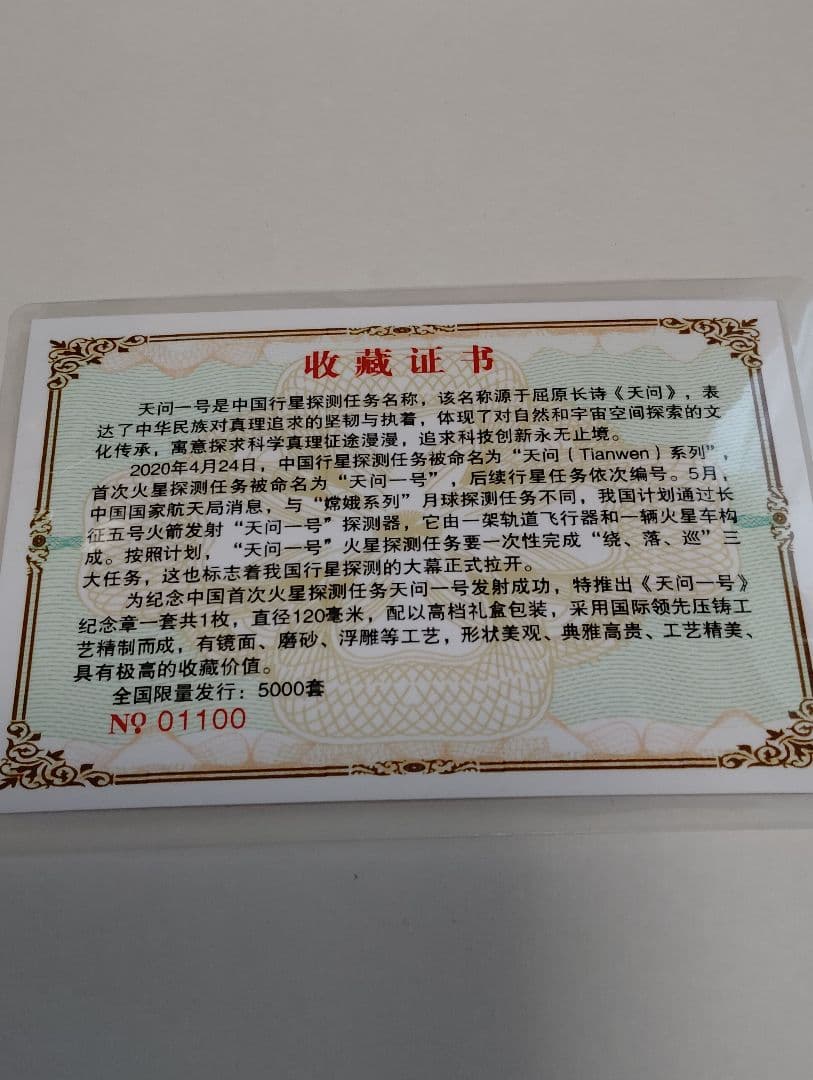 收藏证书
天问一号是中国行星探测任务名称，该名称源于屈原长诗《天问》，表
达了中华民族对真理追求的坚韧与执着，体现了对自然和宇宙空间探索的文
化传承，寓意探求科学真理征途漫漫，追求科技创新永无止境。
2020年4月24日，中国行星探测任务被命名为“天问（Tianwen）系列”，
首次火星探测任务被命名为“天问一号”，后续行星任务依次编号。5月，
中国国家航天局消息，与“嫦娥系列”月球探测任务不同，我国计划通过长
征五号火箭发射“天问一号”探测器，它由一架轨道飞行器和一辆火星车构
成。按照计划，“天问一号”火星探测任务要一次性完成“绕、落、巡”三
大任务，这也标志着我国行星探测的大幕正式拉开。
为纪念中国首次火星探测任务天问一号发射成功，特推出《天问一号》
纪念章一套共1枚，直径120毫米，配以高档礼盒包装，采用国际领先压铸工
艺精制而成，有镜面、磨砂、浮雕等工艺，形状美观、典雅高贵、工艺精美、
具有极高的收藏价值。
全国限量发行：5000套
№ 01100